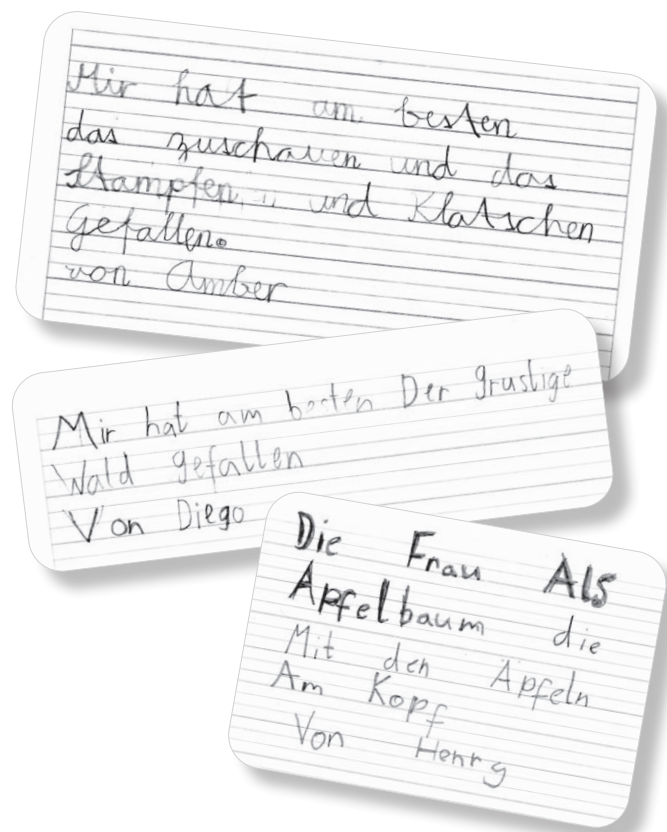 Mir hat am besten
das zuschauen und das
Stampfen und Klatschen
Gefallen.
von Amber
Mir hat am besten Der grustige
Wald gefallen
Von Diego
Die Frau Als
Apfelbaum die
Mit den Äpfeln
Am Kopf
Von Henry